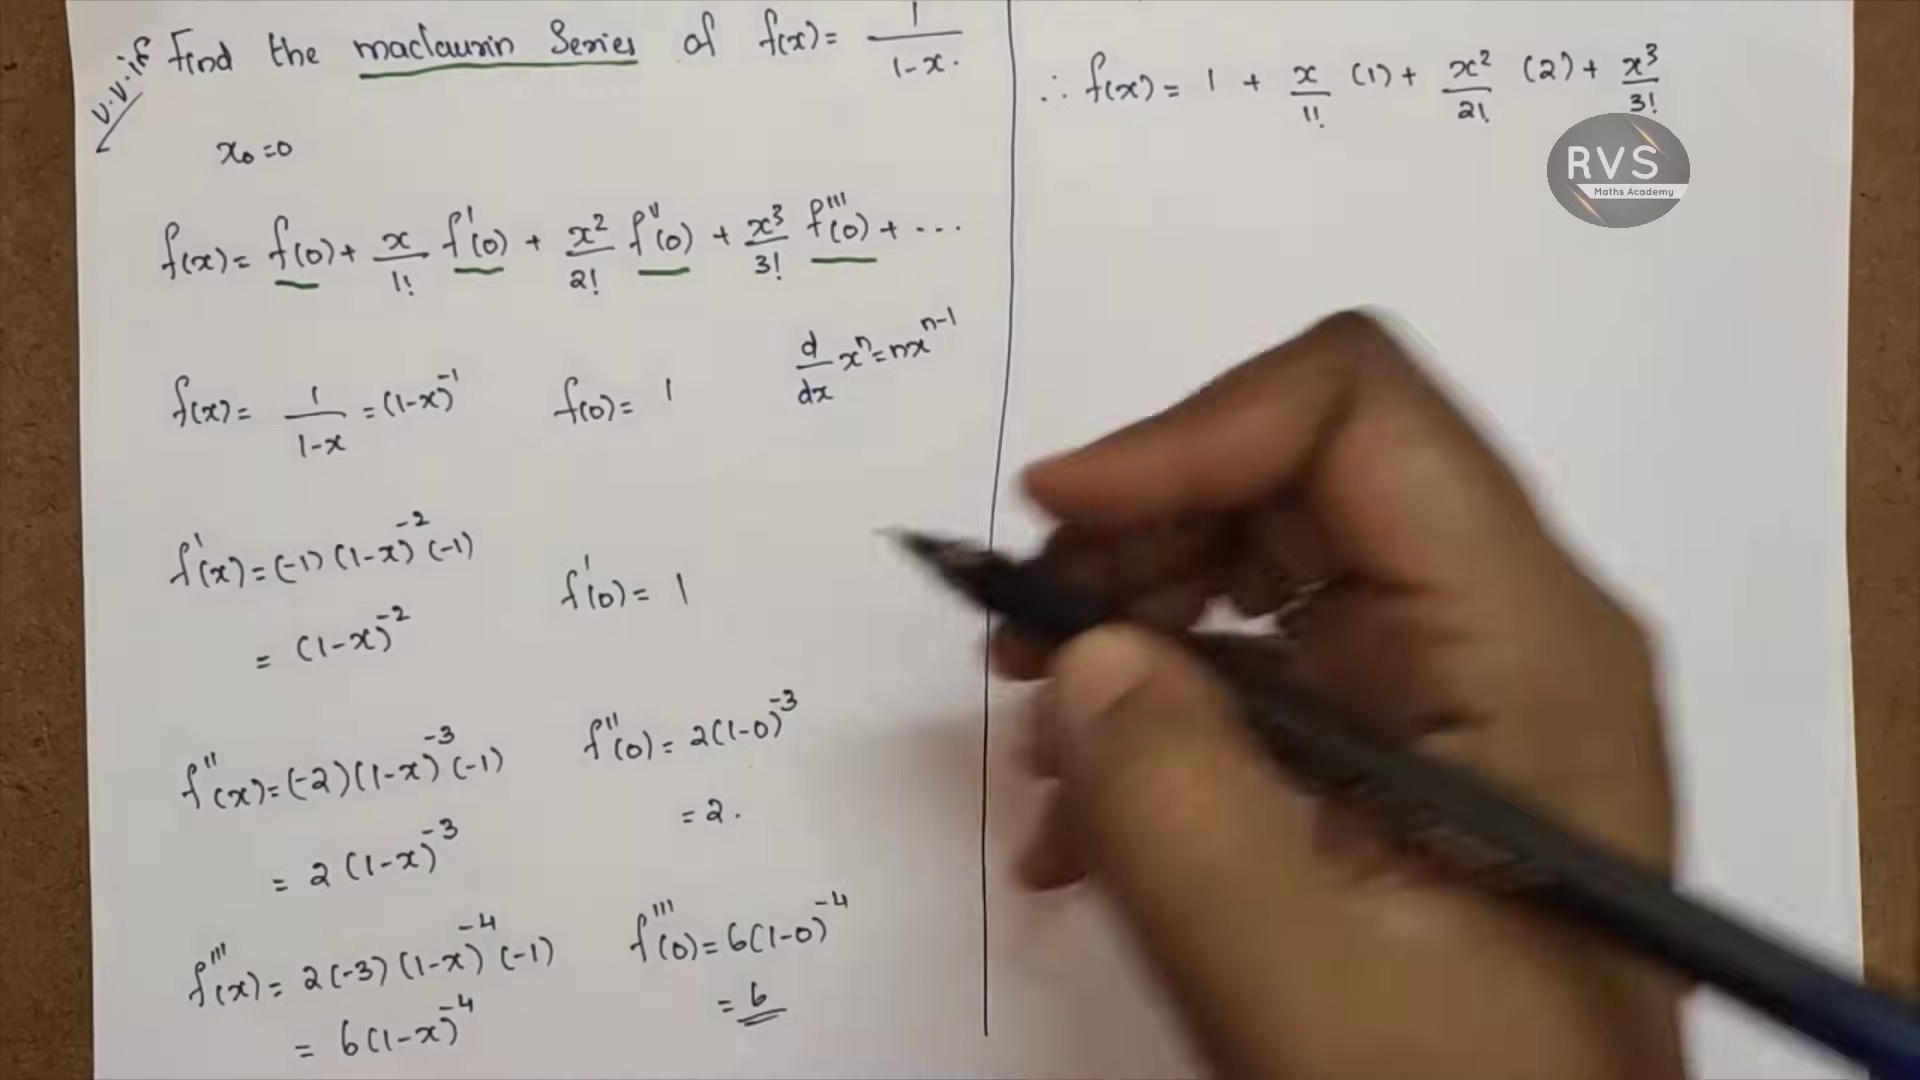 v.v.if Find the maclaurin Series of f(x) = 1/(1-x).
x₀=0
f(x) = f(0) + x/1! f'(0) + x²/2! f''(0) + x³/3! f'''(0) + ...
d/dx xⁿ = nxⁿ⁻¹
f(x) = 1/(1-x) = (1-x)⁻¹ f(0) = 1
f'(x) = (-1)(1-x)⁻²(-1)
= (1-x)⁻² f'(0) = 1
f''(x) = (-2)(1-x)⁻³(-1) f''(0) = 2(1-0)⁻³
= 2(1-x)⁻³ = 2.
f'''(x) = 2(-3)(1-x)⁻⁴(-1) f'''(0) = 6(1-0)⁻⁴
= 6(1-x)⁻⁴ = 6
∴ f(x) = 1 + x/1! (1) + x²/2! (2) + x³/3!
RVS
Maths Academy